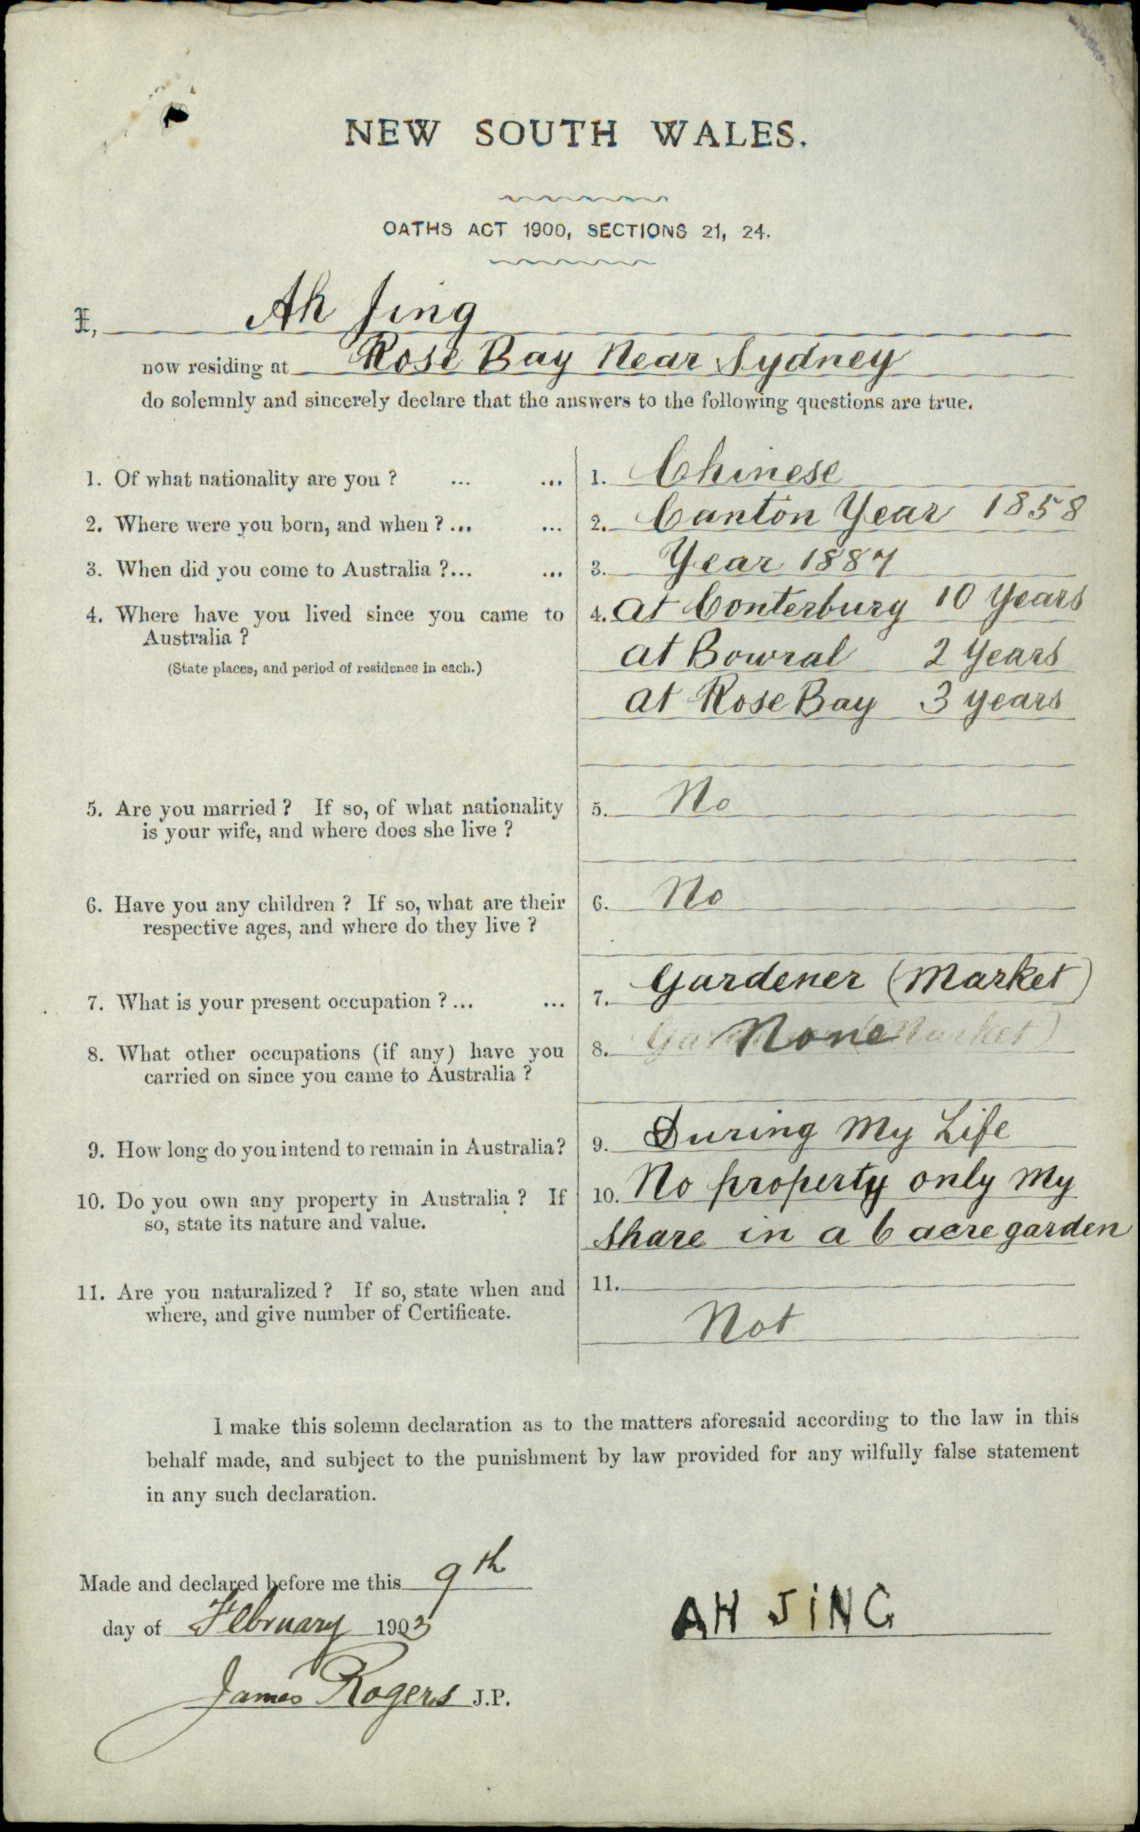 NEW SOUTH WALES.
OATHS ACT 1900, SECTIONS 21, 24.
I, Ah Jing
now residing at Rose Bay Near Sydney
do solemnly and sincerely declare that the answers to the following questions are true.
1. Of what nationality are you ? ... ... 1. Chinese
2. Where were you born, and when ? ... ... 2. Canton Year 1858
3. When did you come to Australia ?... ... 3. Year 1887
4. Where have you lived since you came to 4. at Conterbury 10 Years
Australia ?
(State places, and period of residence in each.) at Bowral 2 Years
at Rose Bay 3 years
5. Are you married ? If so, of what nationality 5. No
is your wife, and where does she live ?
6. Have you any children ? If so, what are their 6. No
respective ages, and where do they live ?
7. What is your present occupation ? ... ... 7. Gardener (Market)
8. What other occupations (if any) have you 8. Gardener (Market) None
carried on since you came to Australia ?
9. How long do you intend to remain in Australia? 9. During My Life
10. Do you own any property in Australia ? If 10. No property only My
so, state its nature and value. Share in a 6 acre garden
11. Are you naturalized ? If so, state when and 11.
where, and give number of Certificate. Not
I make this solemn declaration as to the matters aforesaid according to the law in this
behalf made, and subject to the punishment by law provided for any wilfully false statement
in any such declaration.
Made and declared before me this 9th
day of February 1903
AH JING
James Rogers J.P.